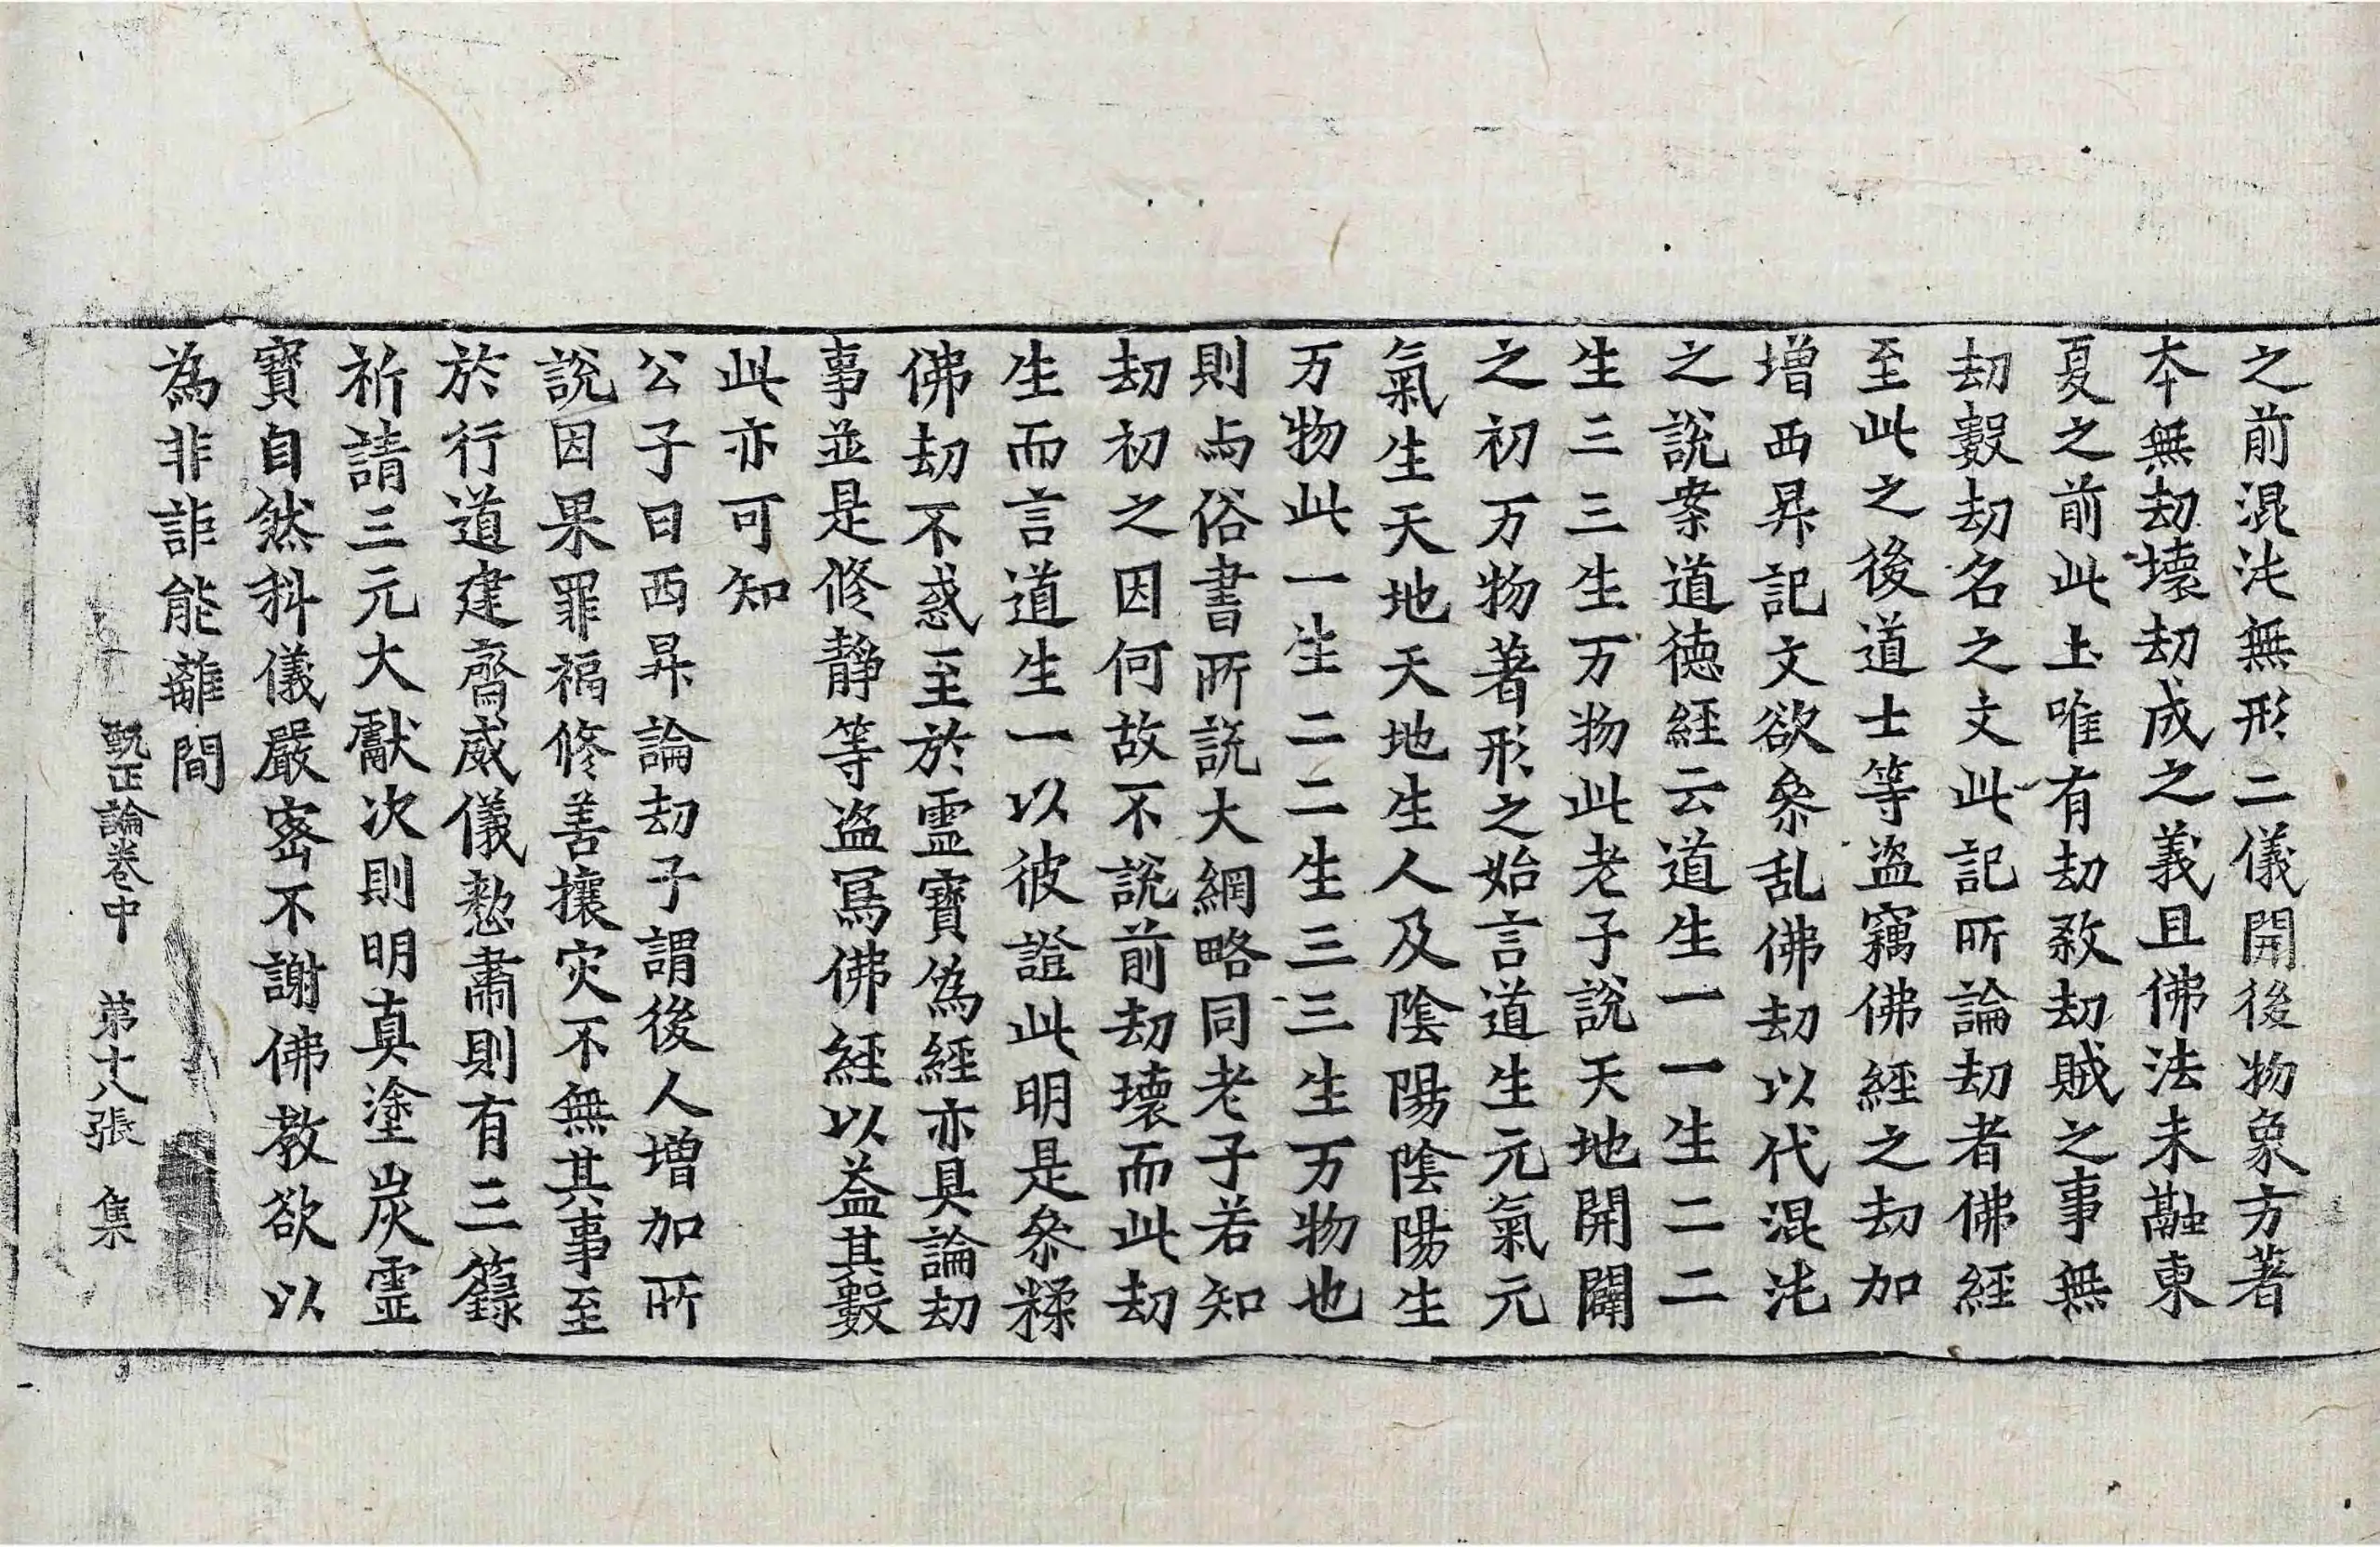 之前混沌無形二儀開後物象方著
本無劫壞劫成之義且佛法未融東
夏之前此土唯有劫敎劫賊之事無
劫數劫名之文此記所論劫者佛經
至此之後道士等盗竊佛經之劫加
增西昇記文欲叅乱佛劫以代混沌
之說案道德經云道生一一生二二
生三三生万物此老子說天地開闢
之初万物著形之始言道生元氣元
氣生天地天地生人及陰陽陰陽生
万物此一生二二生三三生万物也
則与俗書所說大綱略同老子若知
劫初之因何故不說前劫壞而此劫
生而言道生一以彼證此明是叅糅
佛劫不惑至於霊寶偽經亦具論劫
事並是修靜等盗寫佛經以益其數
此亦可知
公子曰西昇論劫子謂後人增加所
說因果罪福修善攘灾不無其事至
於行道建齋威儀懃肅則有三籙
祈請三元大獻次則明真塗炭霊
寶自然科儀嚴密不謝佛教欲以
為非詎能離間
甄正論卷中　第十八張　集